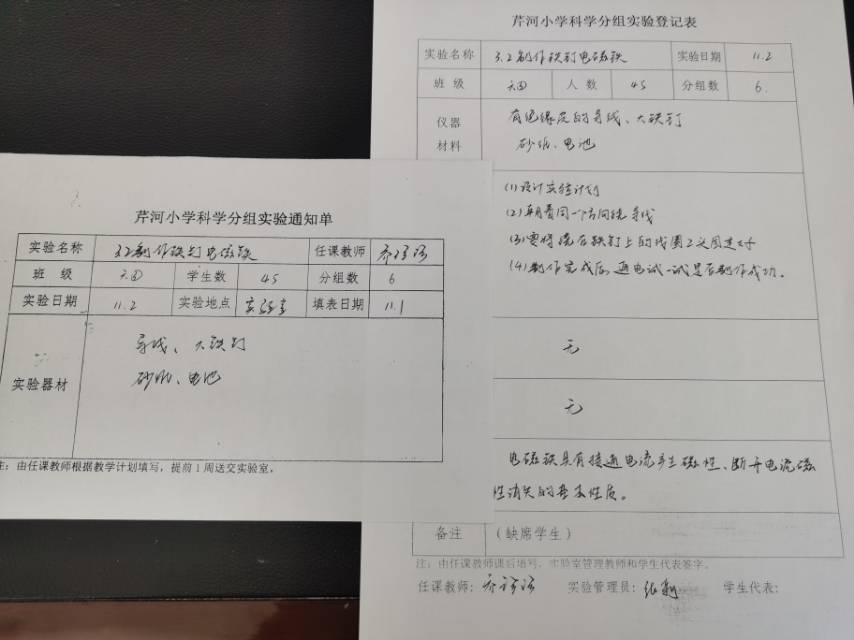 芹河小学科学分组实验通知单
实验名称 3.2制作铁钉电磁铁 任课教师
班 级 六四 学生数 45 分组数 6
实验日期 11.2 实验地点 实验室 填表日期 11.1
实验器材
导线、大铁钉
砂纸、电池
注：由任课教师根据教学计划填写，提前1周送交实验室，
芹河小学科学分组实验登记表
实验名称 3.2制作铁钉电磁铁 实验日期 11.2
班 级 六四 人 数 45 分组数 6.
仪器
材料
有绝缘皮的导线、大铁钉
砂纸、电池
(1)设计实验计划
(2)朝着同一方向绕导线
(3)要将绕在铁钉上的线圈两头固定好
(4)制作完成后，通电试一试是否制作成功。
无
无
电磁铁具有接通电流产生磁性、断开电流磁
性消失的基本性质。
备注 (缺席学生)
注：由任课教师课后填写，实验室管理教师和学生代表签字。
任课教师： 实验管理员：张 学生代表：